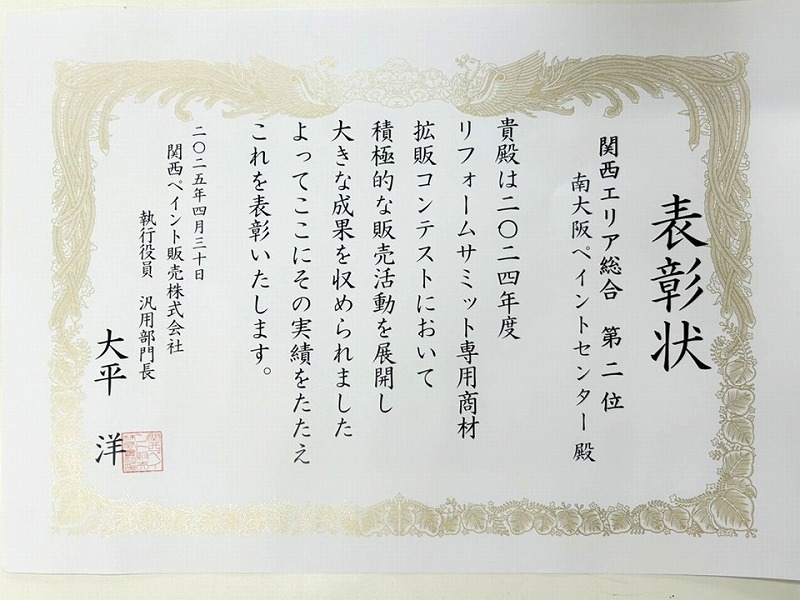 表彰状
関西エリア総合 第二位
南大阪ペイントセンター殿
貴殿は二〇二四年度
リフォームサミット専用商材
拡販コンテストにおいて
積極的な販売活動を展開し
大きな成果を収められました
よってここにその実績をたたえ
これを表彰いたします。
二〇二五年四月三十日
関西ペイント販売株式会社
執行役員 汎用部門長
大平 洋